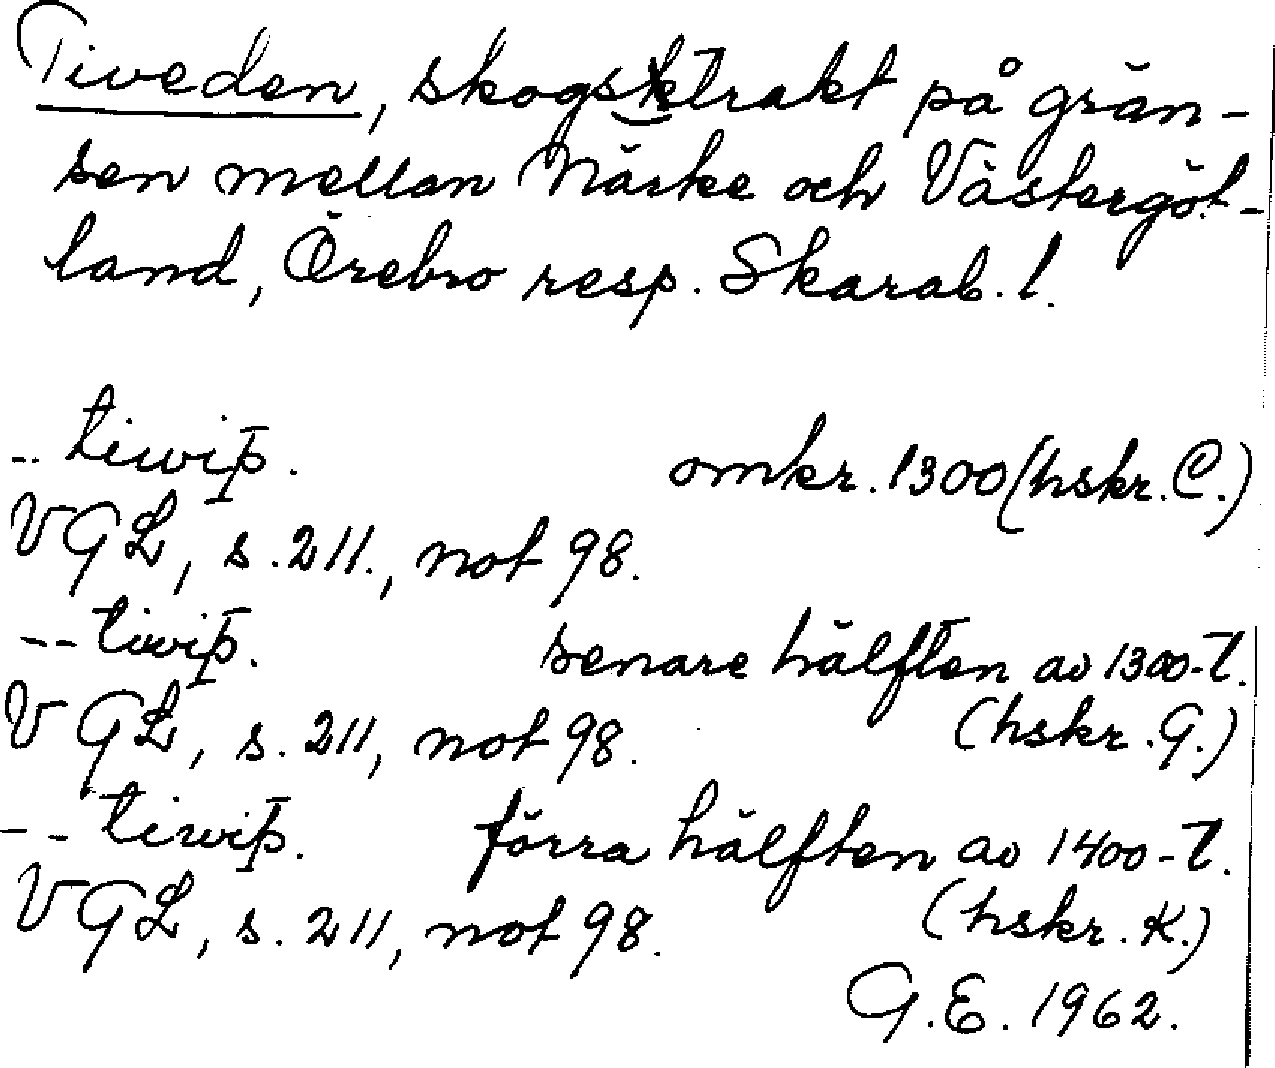 Tiveden, skogstrakt på grän-
sen mellan Närke och Västergöt-
land, Örebro resp. Skarab. l.
-- tiwiþ. omkr. 1300 (hskr. C.)
VGL, s. 211., not 98.
-- tiwiþ. senare hälften av 1300-t.
VGL, s. 211, not 98. (hskr. G.)
-- tiwiþ. förra hälften av 1400-t.
VGL, s. 211, not 98. (hskr. K.)
G.E. 1962.